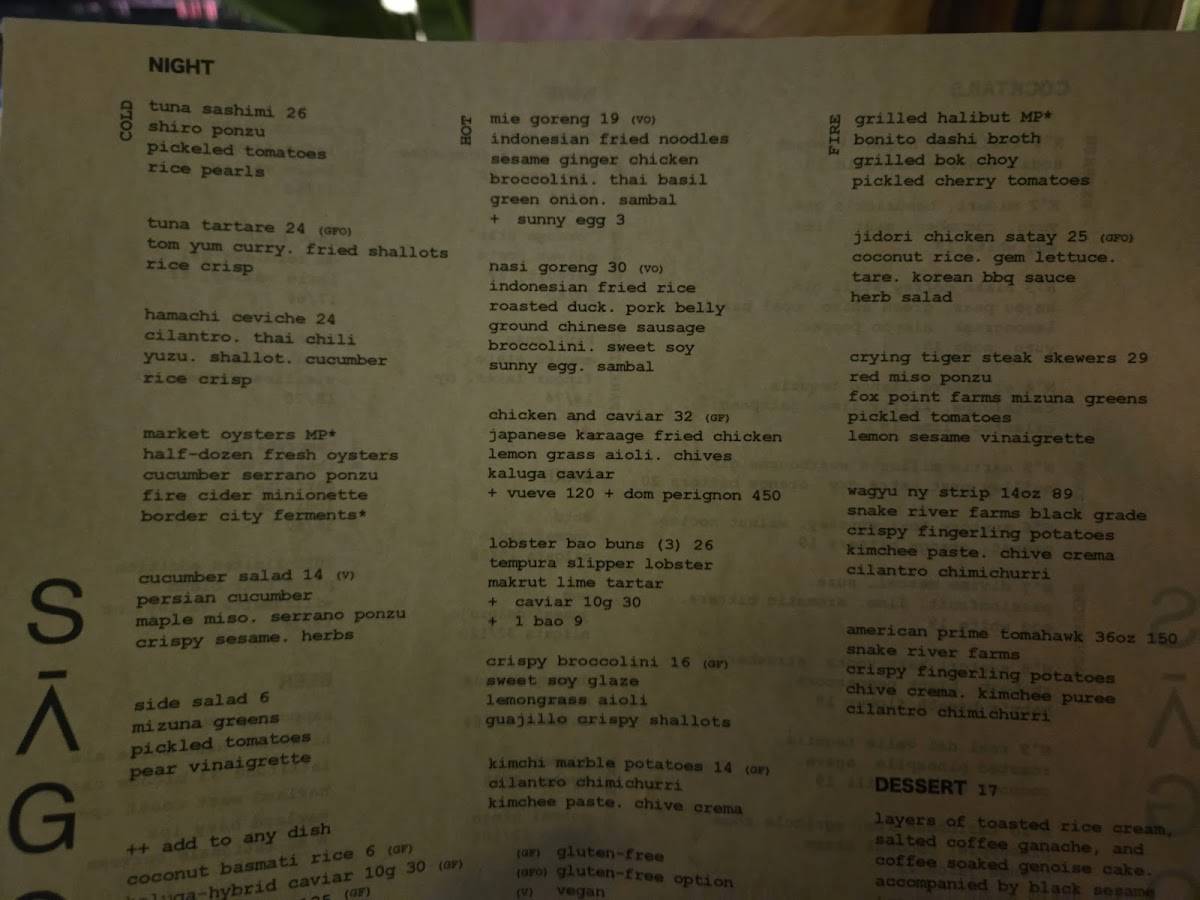 NIGHT
COLD
tuna sashimi 26
shiro ponzu
pickeled tomatoes
rice pearls
tuna tartare 24 (GFO)
tom yum curry. fried shallots
rice crisp
hamachi ceviche 24
cilantro. thai chili
yuzu. shallot. cucumber
rice crisp
market oysters MP*
half-dozen fresh oysters
cucumber serrano ponzu
fire cider minionette
border city ferments*
cucumber salad 14 (V)
persian cucumber
maple miso. serrano ponzu
crispy sesame. herbs
side salad 6
mizuna greens
pickled tomatoes
pear vinaigrette
++ add to any dish
coconut basmati rice 6 (GF)
kaluga-hybrid caviar 10g 30 (GF)
(GF)
HOT
mie goreng 19 (VO)
indonesian fried noodles
sesame ginger chicken
broccolini. thai basil
green onion. sambal
+ sunny egg 3
nasi goreng 30 (VO)
indonesian fried rice
roasted duck. pork belly
ground chinese sausage
broccolini. sweet soy
sunny egg. sambal
chicken and caviar 32 (GF)
japanese karaage fried chicken
lemon grass aioli. chives
kaluga caviar
+ vueve 120 + dom perignon 450
lobster bao buns (3) 26
tempura slipper lobster
makrut lime tartar
+ caviar 10g 30
+ 1 bao 9
crispy broccolini 16 (GF)
sweet soy glaze
lemongrass aioli
guajillo crispy shallots
kimchi marble potatoes 14 (GF)
cilantro chimichurri
kimchee paste. chive crema
(GF) gluten-free
(GFO) gluten-free option
(V) vegan
FIRE
grilled halibut MP*
bonito dashi broth
grilled bok choy
pickled cherry tomatoes
jidori chicken satay 25 (GFO)
coconut rice. gem lettuce.
tare. korean bbq sauce
herb salad
crying tiger steak skewers 29
red miso ponzu
fox point farms mizuna greens
pickled tomatoes
lemon sesame vinaigrette
wagyu ny strip 14oz 89
snake river farms black grade
crispy fingerling potatoes
kimchee paste. chive crema
cilantro chimichurri
american prime tomahawk 36oz 150
snake river farms
crispy fingerling potatoes
chive crema. kimchee puree
cilantro chimichurri
DESSERT 17
layers of toasted rice cream,
salted coffee ganache, and
coffee soaked genoise cake.
accompanied by black sesame
S
Ā
G